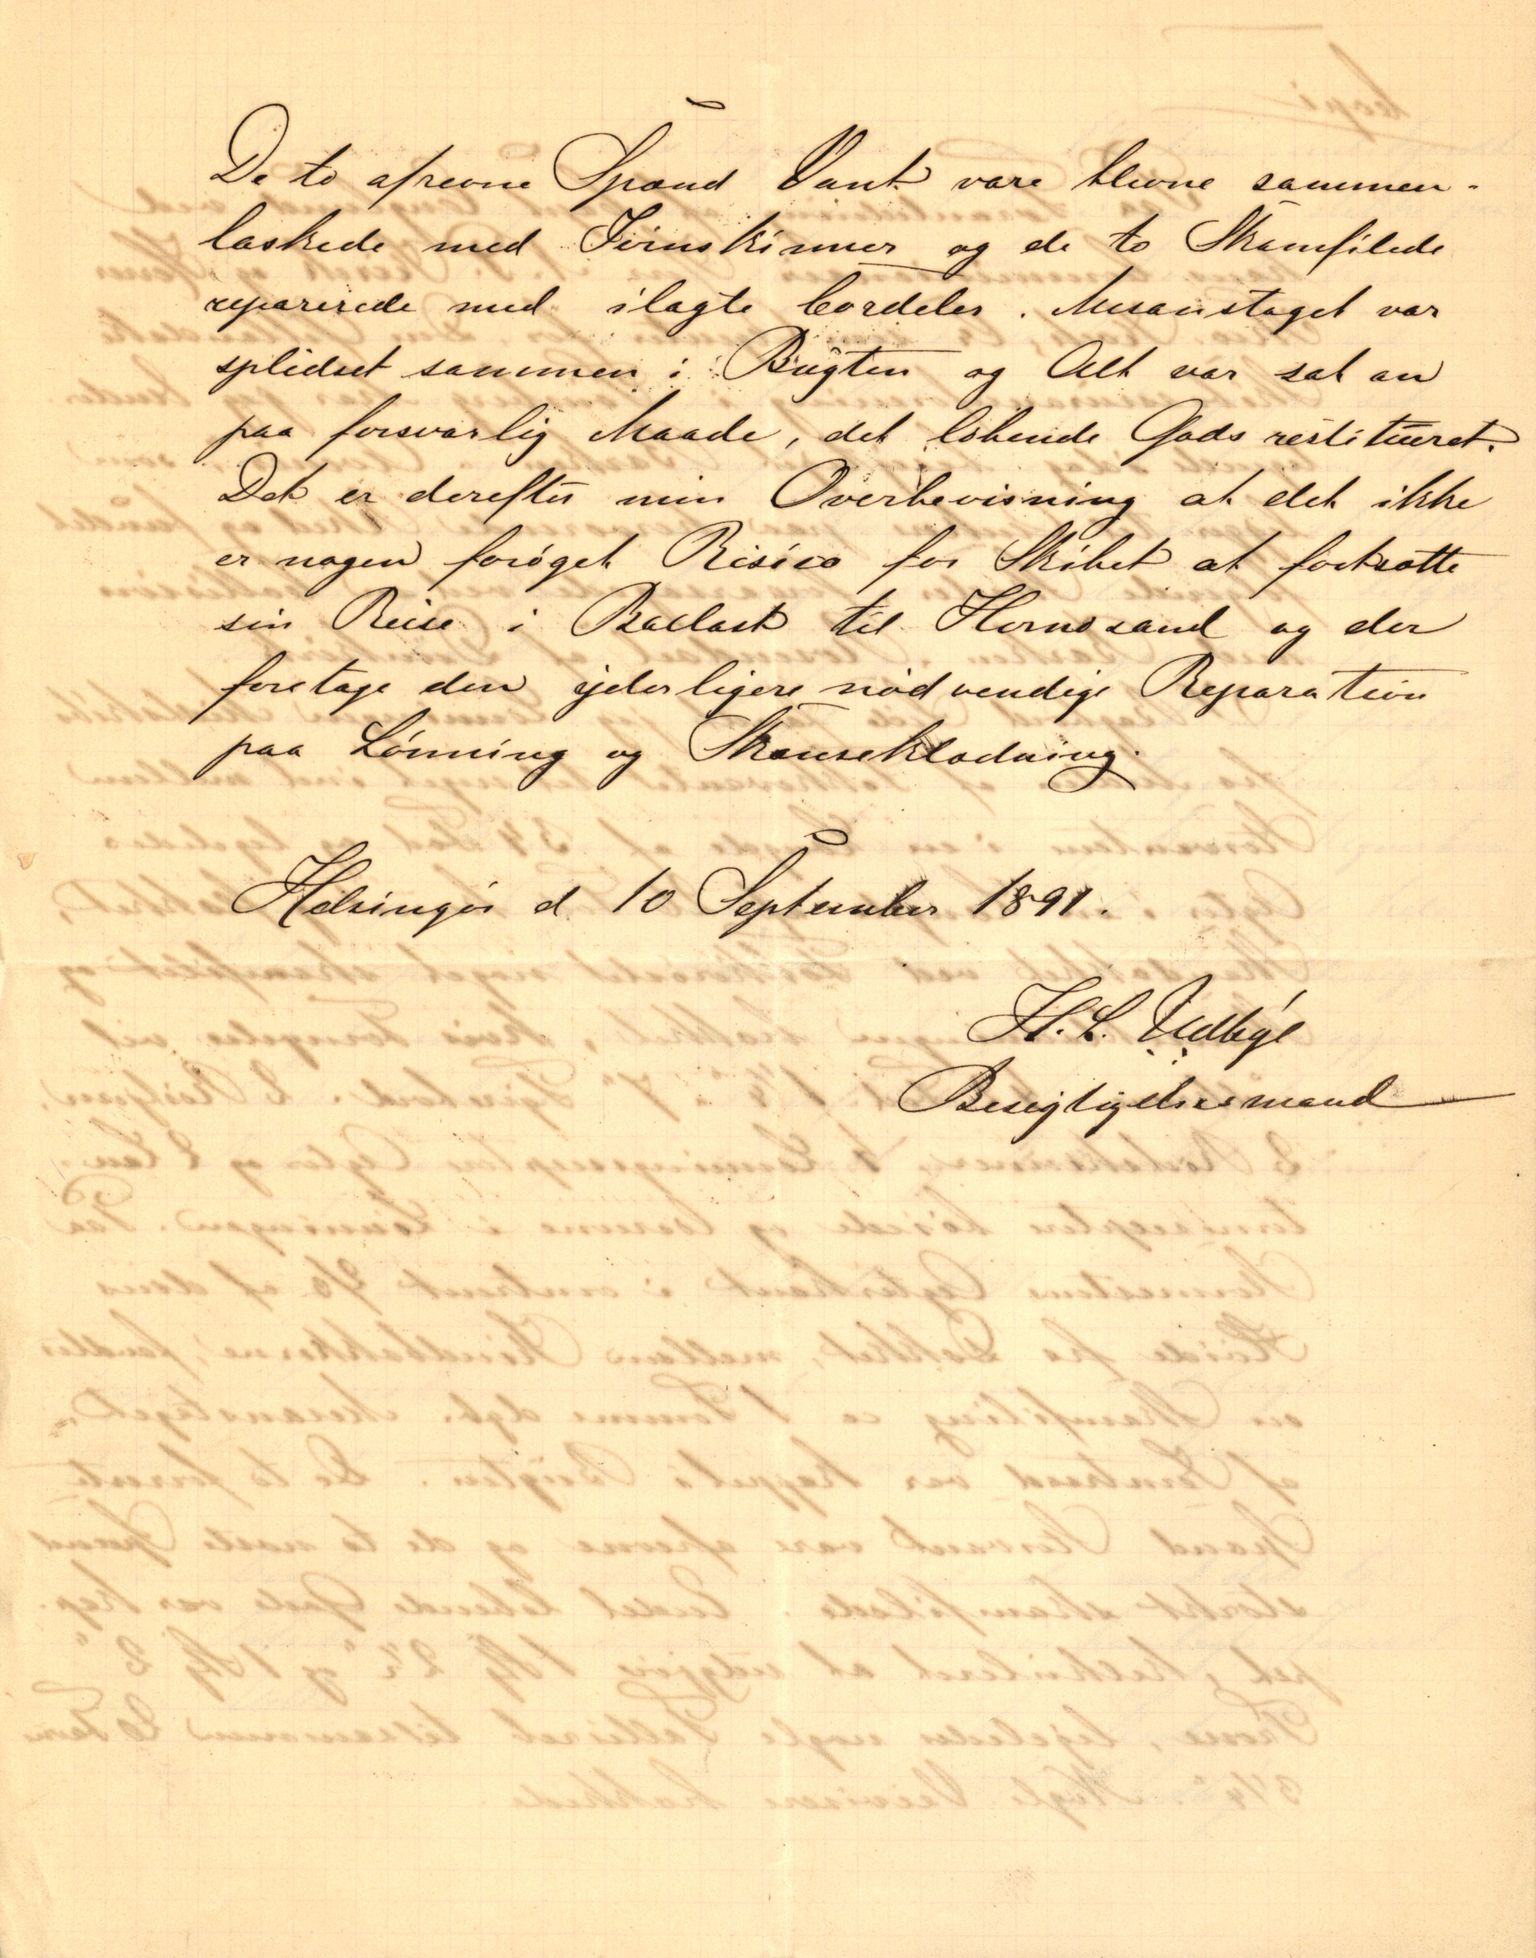 De to afrevne Spænd Vant vare blevne sammen-
laskede med Jernskinner og de to Skamfilede
reparerede med ilagte Cordeler. Mesanstaget var
splidset sammen i Bugten og Alt var sat an
paa forsvarlig Maade, det løbende Gods restitueret.
Det er derefter min Overbevisning at det ikke
er nogen forøget Risico for Skibet at fortsætte
sin Reise i Ballast til Hernøsand og der
foretage den yderligere nødvendige Reparation
paa Lønning og Skanseklædning.
Helsingør d. 10 September 1891.
H. L. Udbye
Besigtigelsesmand